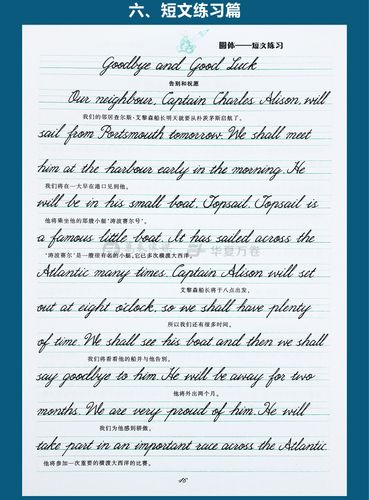 六、短文练习篇
圆体——短文练习
Goodbye and Good Luck
告别和祝愿
Our neighbour, Captain Charles Alison, will
我们的邻居查尔斯·艾黎森船长明天就要从朴茨茅斯启航了。
sail from Portsmouth tomorrow. We shall meet
him at the harbour early in the morning. He
我们将在一大早在港口见到他。
will be in his small boat, Topsail. Topsail is
他将乘坐他的那艘小艇“涛波赛尔号”。
a famous little boat. It has sailed across the
“涛波赛尔”是一艘很有名的小艇，它已多次横渡大西洋。
华夏万卷
Atlantic many times. Captain Alison will set
艾黎森船长将于八点出发，
out at eight o'clock, so we shall have plenty
所以我们还有很多时间。
of time. We shall see his boat and then we shall
我们将看看他的船并与他告别。
say goodbye to him. He will be away for two
他将外出两个月。
months. We are very proud of him. He will
我们为他感到骄傲。
take part in an important race across the Atlantic.
他将参加一次重要的横渡大西洋的比赛。